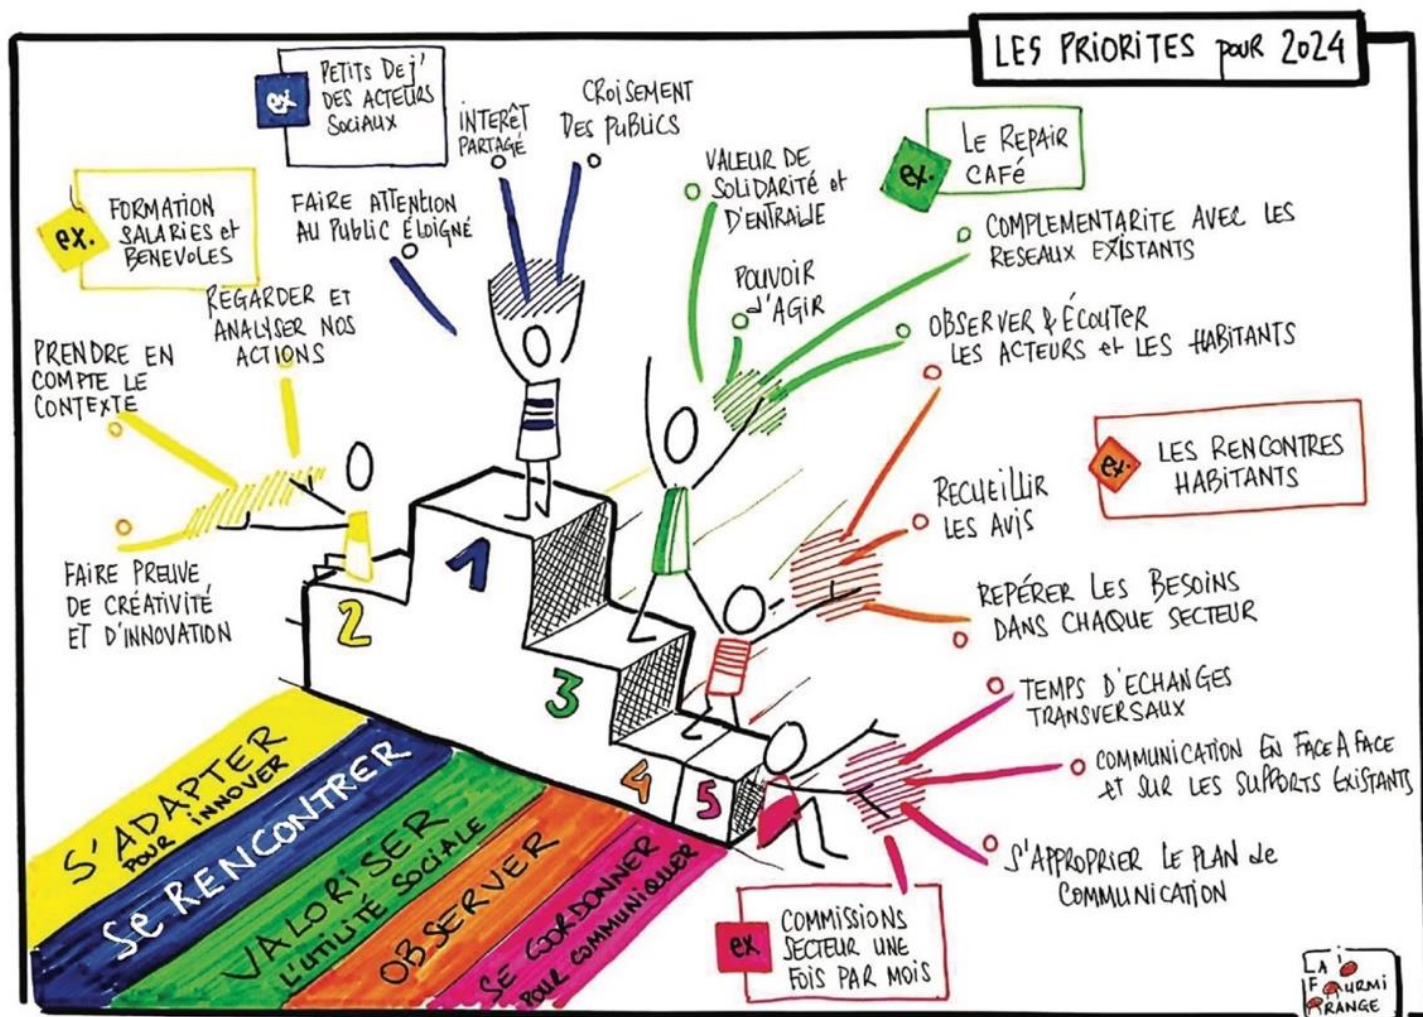 LES PRIORITES pour 2024
ex
PETITS DEJ'
DES ACTEURS
SOCIAUX
INTERÊT
PARTAGÉ
CROISEMENT
DES PUBLICS
FAIRE ATTENTION
AU PUBLIC ÉLOIGNÉ
ex.
FORMATION
SALARIES et
BENEVOLES
REGARDER ET
ANALYSER NOS
ACTIONS
PRENDRE EN
COMPTE LE
CONTEXTE
FAIRE PREUVE
DE CRÉATIVITÉ
ET D'INNOVATION
VALEUR DE
SOLIDARITÉ et
D'ENTRAIDE
POUVOIR
d'AGIR
ex.
LE REPAIR
CAFÉ
COMPLEMENTARITE AVEC LES
RESEAUX EXISTANTS
OBSERVER & ÉCOUTER
LES ACTEURS et LES HABITANTS
ex.
LES RENCONTRES
HABITANTS
RECUEILLIR
LES AVIS
REPÉRER LES BESOINS
DANS CHAQUE SECTEUR
TEMPS D'ECHANGES
TRANSVERSAUX
COMMUNICATION EN FACE A FACE
et SUR LES SUPPORTS EXISTANTS
S'APPROPRIER LE PLAN de
COMMUNICATION
ex
COMMISSIONS
SECTEUR UNE
FOIS PAR MOIS
1
2
3
4
5
S'ADAPTER
POUR INNOVER
Se RENCONTRER
VALORISER
L'UTILITÉ SOCIALE
OBSERVER
SE COORDONNER
POUR COMMUNIQUER
LA
FOURMI
ORANGE